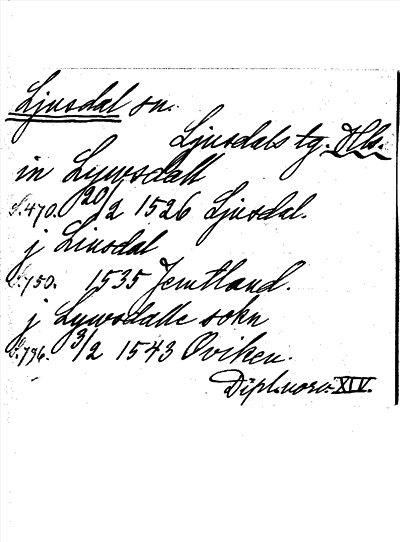 Ljusdal sn.
Ljusdals tg. Hls.
in Lywsdall
S. 470. 20/2 1526 Ljusdal.
j Liusdal
S. 750. 1535 Jemtland.
j Lywsdalle sokn
S. 796. 3/2 1543 Oviken.
Dipl. norv. XIV.